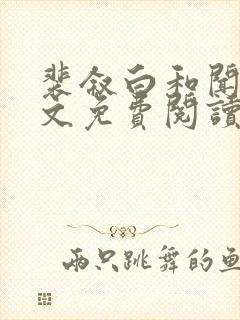 裴叙白和閒
文免費閱讀
兩只跳舞的魚